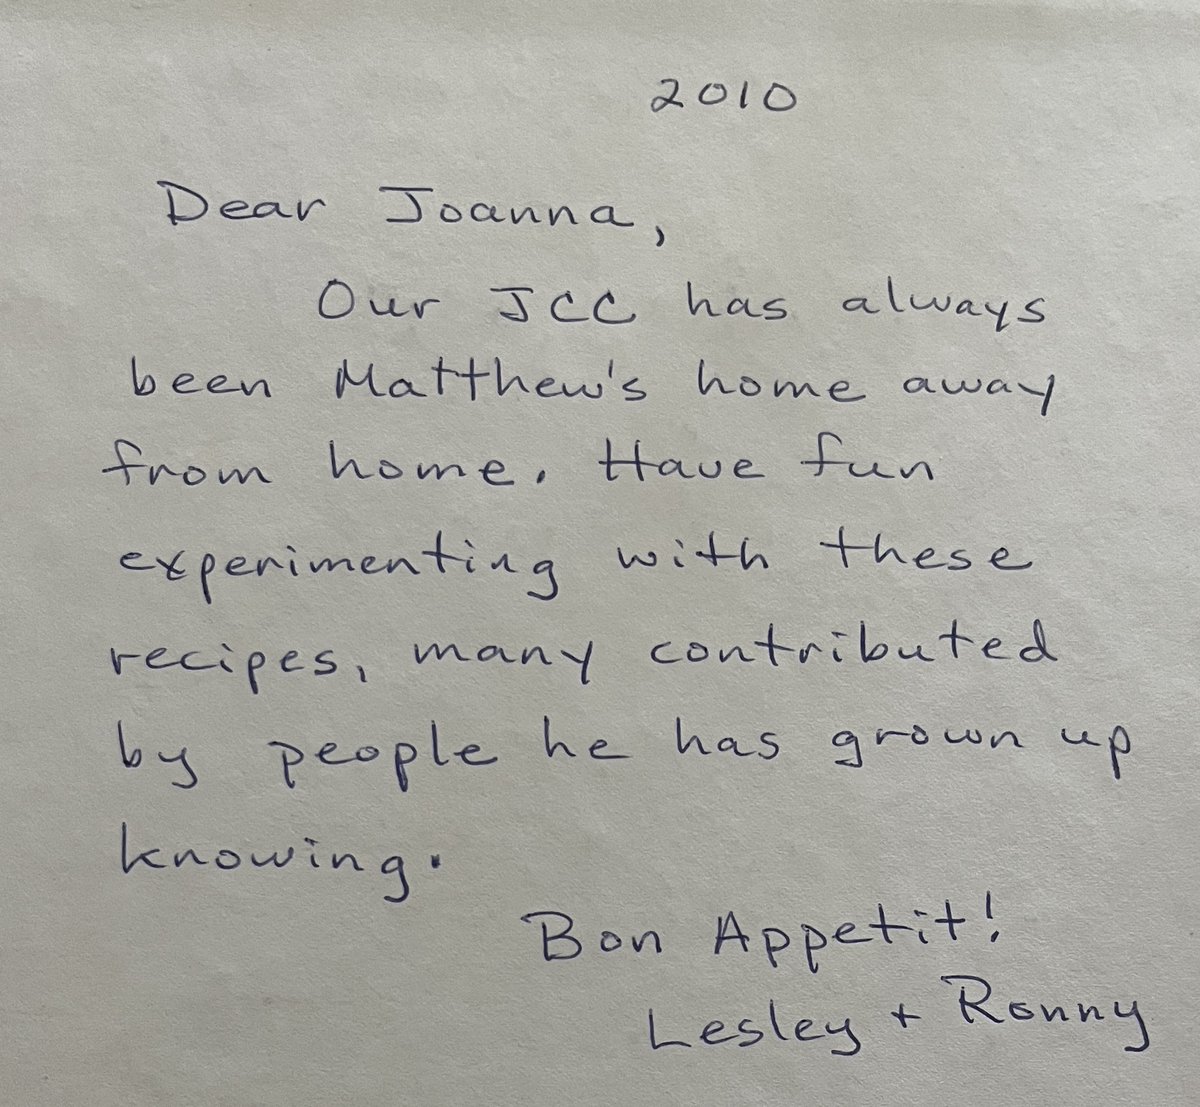 2010
Dear Joanna,
Our JCC has always
been Matthew's home away
from home. Have fun
experimenting with these
recipes, many contributed
by people he has grown up
knowing.
Bon Appetit!
Lesley + Ronny